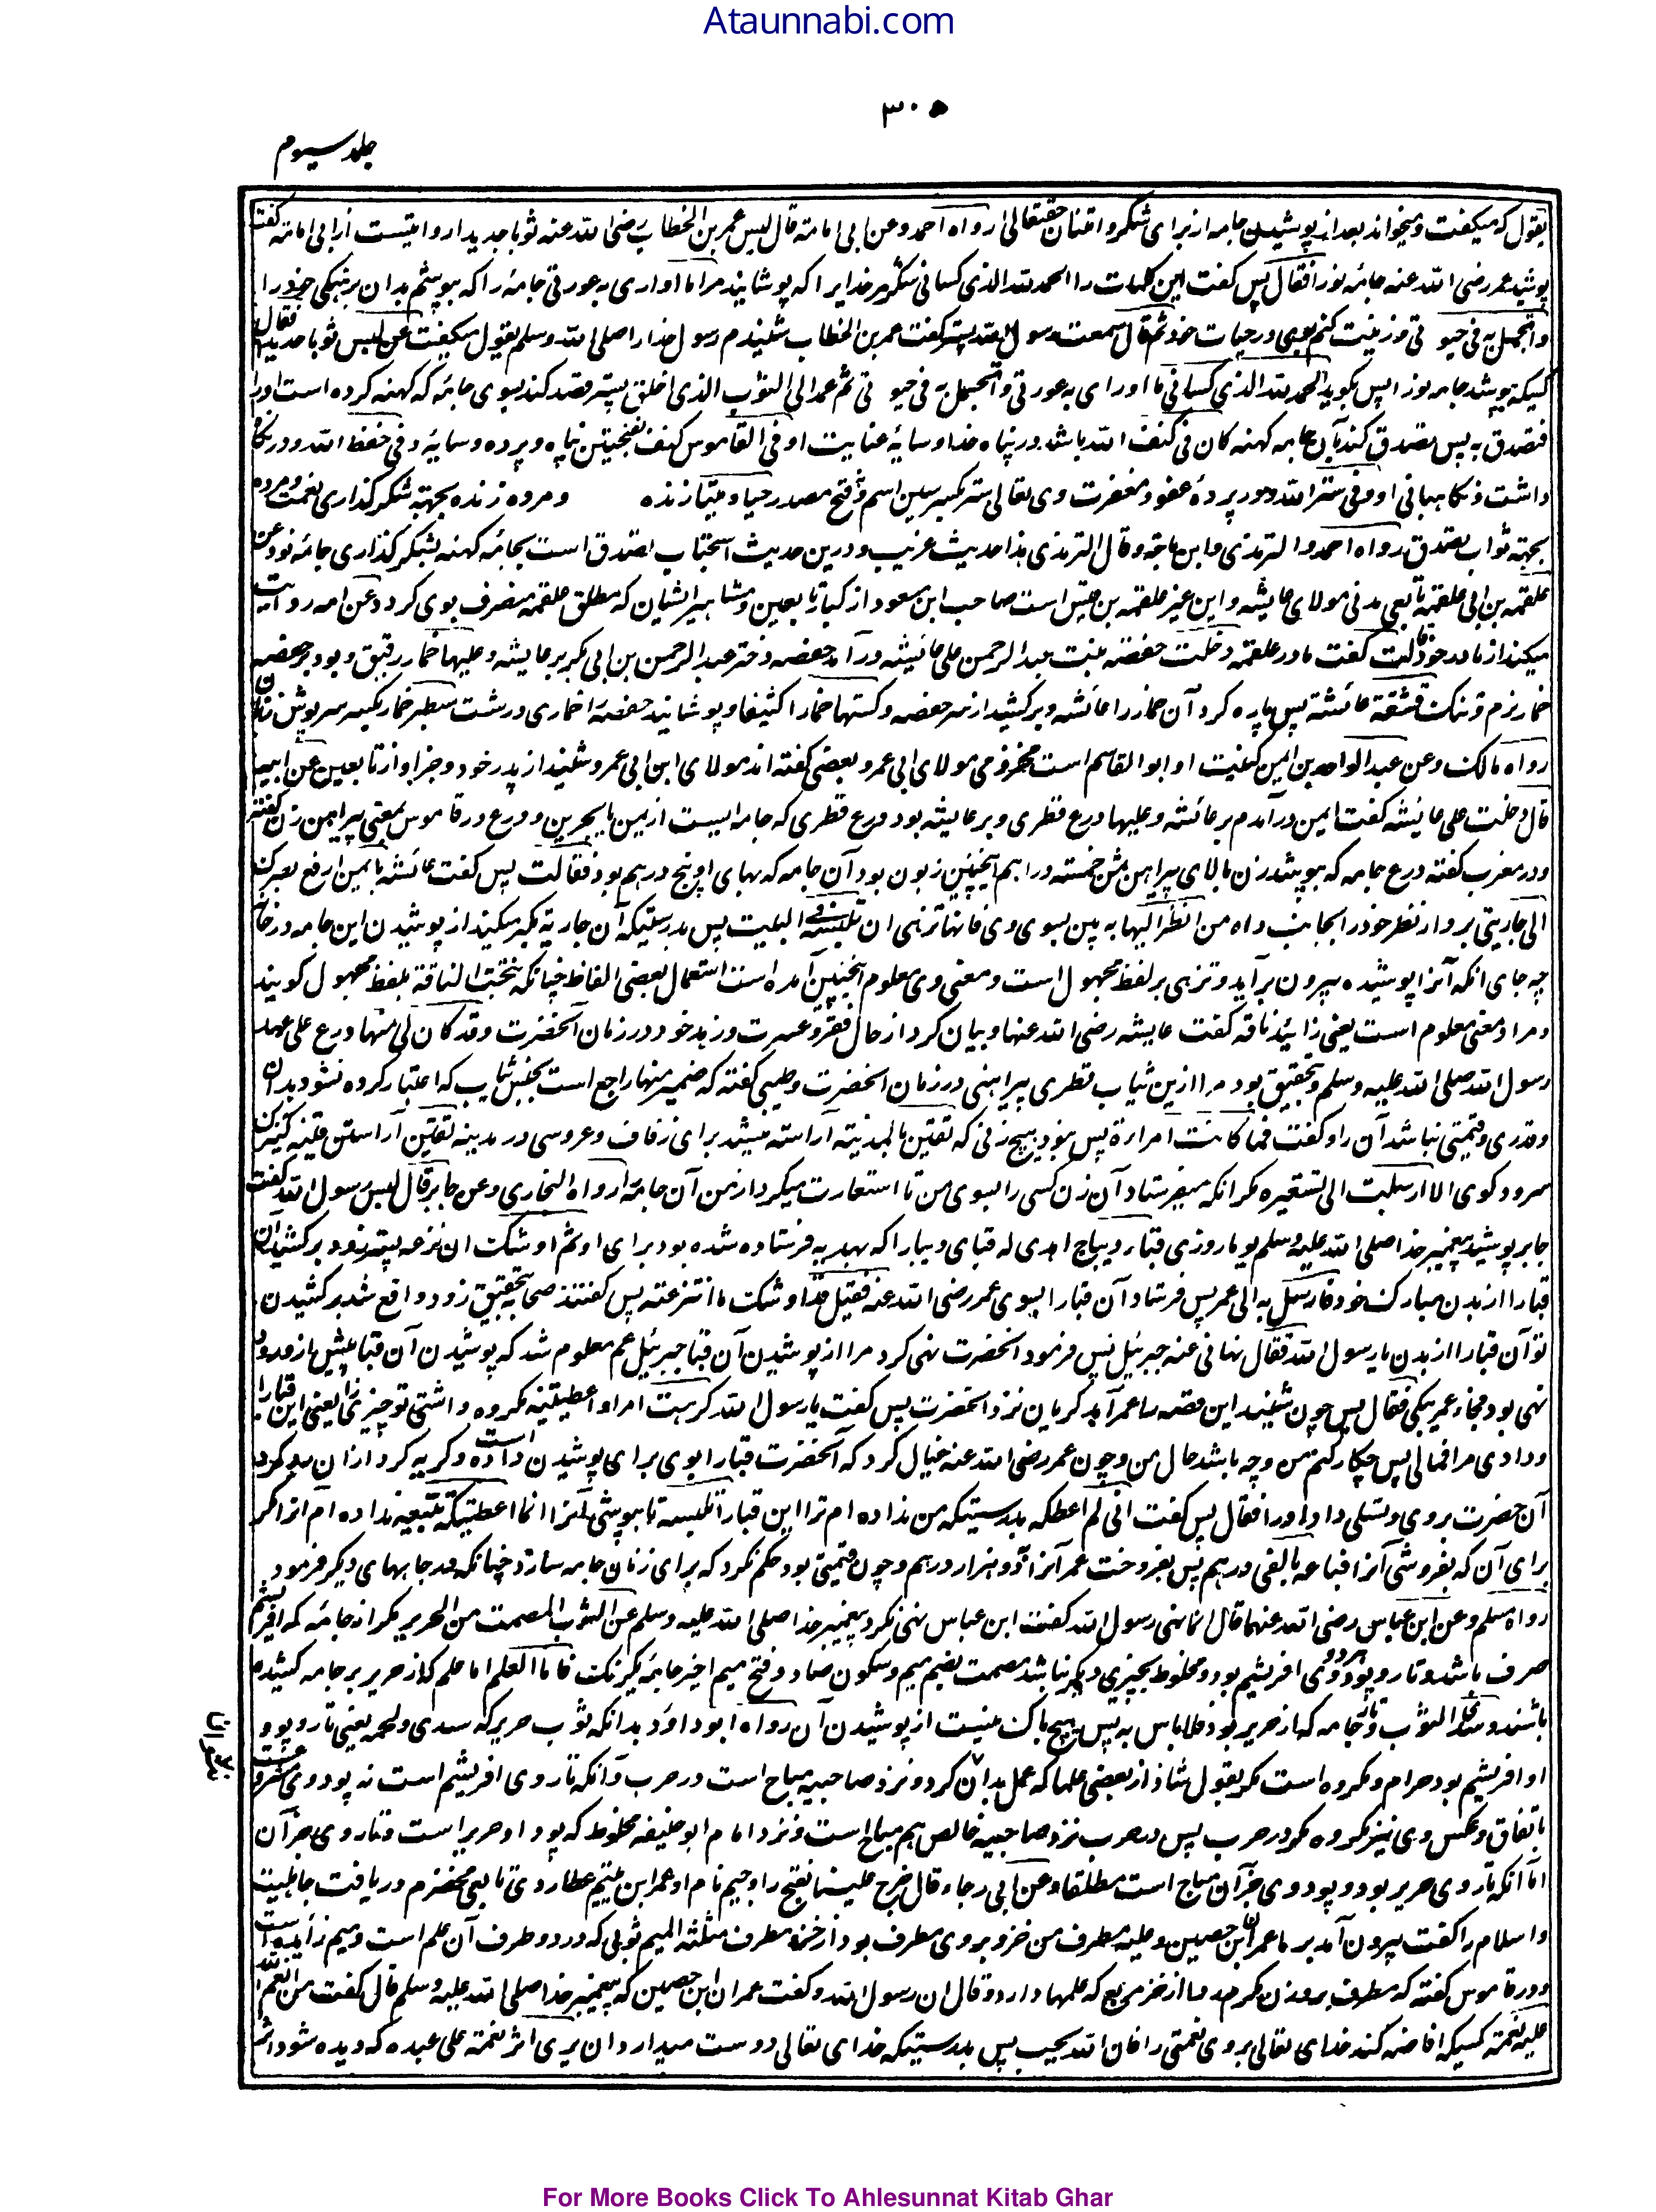 Ataunnabi.com
٣٠٥
جلد سیوم
یقول که میگفت و میخواند بعد از پوشیدن جامه از برای شکر و امتنان حقتعالی رواه احمد وعن ابی امامة قال لبس عمر بن الخطاب رضی الله عنه ثوبا جدیدا روایتیست از ابی امامه گفت
پوشید عمر رضی الله عنه جامه نو را فقال پس گفت این کلمات را الحمد لله الذی کسانی شکر مر خدایرا که پوشانید مرا ما اواری به عورتی جامه را که بپوشم بدان برهنگی خود را
واتجمل به فی حیوتی و زینت کنم بوی در حیات خود ثم قال سمعت رسول الله پستر گفت عمر بن الخطاب شنیدم رسول خدا را صلی الله وسلم یقول میگفت من لبس ثوبا جدیدا فقال
کسیکه بپوشد جامه نو را پس بگوید الحمد لله الذی کسانی ما اواری به عورتی واتجمل به فی حیوتی ثم عمد الی الثوب الذی اخلق پستر قصد کند بسوی جامه که کهنه کرده است او را
فتصدق به پس تصدق کند بآن جامه کهنه کان فی کنف الله باشد در پناه خدا و سایه عنایت او فی القاموس کنف بفتحتین پناه و پرده و سایه وفی حفظ الله و در نگاه
داشت و نگاهبانی او وفی ستر الله و در پرده عفو و مغفرت وی تعالی ستر بکسر سین اسم و بفتح مصدر حیا ومیتا زنده و مرده زنده بجهته شکر گذاری نعمت و مرده
بجهته ثواب تصدق رواه احمد والترمذی وابن ماجة وقال الترمذی هذا حدیث غریب و درین حدیث استحباب تصدق است بجامه کهنه بشکر گذاری جامه نو وعن
علقمة بن ابی علقمة تابعی مدنی مولای عایشه و این غیر علقمه بن قیس است صاحب ابن مسعود از کبار تابعین و مشاهیر ایشان که مطلق علقمه منصرف بوی گردد عن امه روایت
میکند از مادر خود قالت گفت مادر علقمه دخلت حفصة بنت عبد الرحمن علی عائشه در آمد حفصه دختر عبد الرحمن بن ابی بکر بر عایشه وعلیها خمار رقیق و بود بر حفصه
خمار نرم و تنک فشقته عائشة پس پاره کرد آن خمار را عائشه و برکشید از سر حفصه وکستها خمارا کثیفا و پوشانید حفصه را خماری درشت سطبر خمار بکسر سرپوش زنان
رواه مالک وعن عبد الواحد بن ایمن کنیت او ابو القاسم است مخزومی مولای ابی عمرو بعضی گفته اند مولای ابن ابی عمرو شنید از پدر خود و جز او از تابعین عن ابیه
قال دخلت علی عائشه گفت ایمن در آمدم بر عائشه وعلیها درع قطری و بر عایشه بود درع قطری که جامه ایست از یمن یا بحرین و درع در قاموس بمعنی پیراهن زن گفته
و در مغرب گفته درع جامه که بپوشد زن بالای پیراهن ثمن خمسة دراهم اینچنین زبون بود آن جامه که بهای او پنج درهم بود فقالت پس گفت عائشه بایمن ارفع بصرک
الی جاریتی بردار نظر خود را بجانب داه من انظر الیها به بین بسوی وی فانها تزهی ان تلبسه فی البیت پس بدرستیکه آن جاریه تکبر میکند از پوشیدن این جامه در خانه
چه جای انکه آنرا پوشیده بیرون برآید و تزهی بر لفظ مجهول است و معنی وی معلوم اینچنین آمده است استعمال بعضی الفاظ چنانکه نتجت الناقة بلفظ مجهول گویند
و مراد معنی معلوم است یعنی زائید ناقه گفت عایشه رضی الله عنها و بیان کرد از حال فقر و عسرت و زهد خود در زمان آنحضرت وقد کان لی منها درع علی عهد
رسول الله صلی الله علیه وسلم و بتحقیق بود مرا ازین ثیاب قطری پیراهنی در زمان آنحضرت وطیبی گفته که ضمیر منها راجع است بجنس ثیاب که اعتبار کرده نشود بدان
و قدری و قیمتی نباشد آن را و گفت فما کانت امراة پس نبود هیچ زنی که تقین بالمدینة آراسته میشد برای زفاف و عروسی در مدینه تقیین آراستن قینه کنیزک
سرود گوی الا ارسلت الی تستعیره مگر آنکه میفرستاد آن زن کسی را بسوی من تا استعارت میکرد از من آن جامه را رواه البخاری وعن جابر قال لبس رسول الله گفت
جابر پوشید پیغمبر خدا صلی الله علیه وسلم یوما روزی قباء دیباج اهدی له قبای دیبا را که بهدیه فرستاده شده بود برای او ثم اوشک ان نزعه پستر زود برکشید آن
قبا را از بدن مبارک خود فارسل به الی عمر پس فرستاد آن قبا را بسوی عمر رضی الله عنه فقیل قد اوشک ما انتزعته پس گفتند صحابه بتحقیق زود واقع شد برکشیدن
تو آن قبا را از بدن یا رسول الله فقال نهانی عنه جبرئیل پس فرمود آنحضرت نهی کرد مرا از پوشیدن آن قبا جبرئیل عم معلوم شد که پوشیدن آن قبا پیش از ورود
نهی بود فجاء عمر یبکی فقال پس چون شنید این قصه را عمر آمد گریان نزد آنحضرت پس گفت یا رسول الله کرهت امرا واعطیتنیه مکروه داشتی تو چیزی را یعنی این قبا را
و دادی مرا فما لی پس چکار کنم من و چه باشد حال من و چون عمر رضی الله عنه خیال کرد که آنحضرت قبا را بوی برای پوشیدن داده است و گریه کرد ازان رو کرد
آن حضرت بروی و تسلی داد او را فقال پس گفت انی لم اعطکه بدرستیکه من نداده ام ترا این قبا را تلبسه تا بپوشی آنرا انما اعطیتکه تبیعه نداده ام آنرا مگر
برای آن که بفروشی آنرا فباعه بالفی درهم پس بفروخت عمر آنرا بدو هزار درهم و چون قیمتی بود حکم نکرد که برای زنان جامه سازد چنانکه در جابهای دیگر فرمود
رواه مسلم وعن ابن عباس رضی الله عنهما قال انما نهی رسول الله گفت ابن عباس نهی نکرد پیغمبر خدا صلی الله علیه وسلم عن الثوب المصمت من الحریر مگر از جامه که ابریشم
صرف باشد و تار و پود وی هردو ابریشم بود و مخلوط بچیزی دیگر نباشد مصمت بضم میم و سکون صاد و فتح میم اخیر جامه یکرنگ فاما العلم اما علم که از حریر بر جامه کشیده
باشند وسدی الثوب و تار جامه که از حریر بود فلا باس به پس هیچ باک نیست از پوشیدن آن رواه ابو داود بدانکه ثوب حریر که سدی ولحمه یعنی تار و پود
او ابریشم بود حرام و مکروه است مگر بقول شاذ از بعضی علما که عمل بدان کردو نزد صاحبیه مباح است در حرب و آنکه تار وی ابریشم است نه پود وی مشروع است
باتفاق و عکس وی نیز مکروه مگر در حرب پس در حرب نزد صاحبیه خالص هم مباح است و نزد امام ابو حنیفه مخلوط که پود او حریر است و تار وی جز آن
اما آنکه تار وی حریر بود و پود وی جز آن مباح است مطلقا وعن ابی رجاء قال خرج علینا بفتح را و جیم نام او عمران بن تیم عطاردی تابعی مخضرم دریافت جاهلیت
و اسلام را گفت بیرون آمد بر ما عمران بن حصین وعلیه مطرف من خز و بر وی مطرف بود از خز مطرف مثلثة المیم ثوبی که در دو طرف آن علم است و میم زایده است
و در قاموس گفته که مطرف بر وزن مکرم ردا از خز مربع که علمها دارد وقال ان رسول الله و گفت عمران ابن حصین که پیغمبر خدا صلی الله علیه وسلم قال گفت من انعم الله
علیه نعمة کسیکه افاضه کند خدای تعالی بروی نعمتی را فان الله یحب پس بدرستیکه خدای تعالی دوست میدارد ان یری اثر نعمته علی عبده که دیده شود اثر
For More Books Click To Ahlesunnat Kitab Ghar